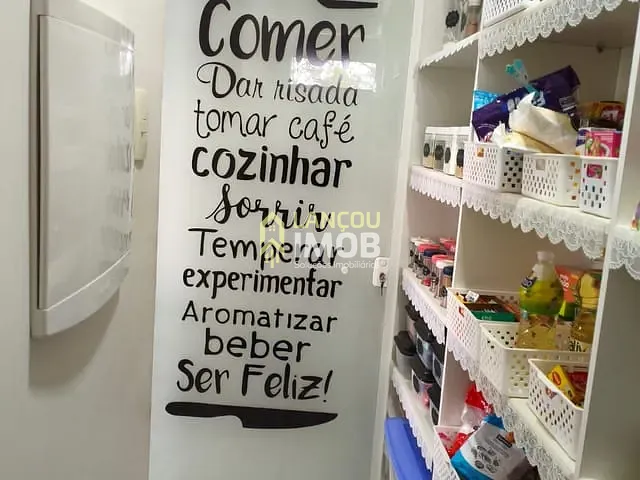 Comer
Dar risada
tomar café
cozinhar
Sorrir
Temperar
experimentar
Aromatizar
beber
Ser Feliz!
LANÇOU
IMOB
Soluções Imobiliárias